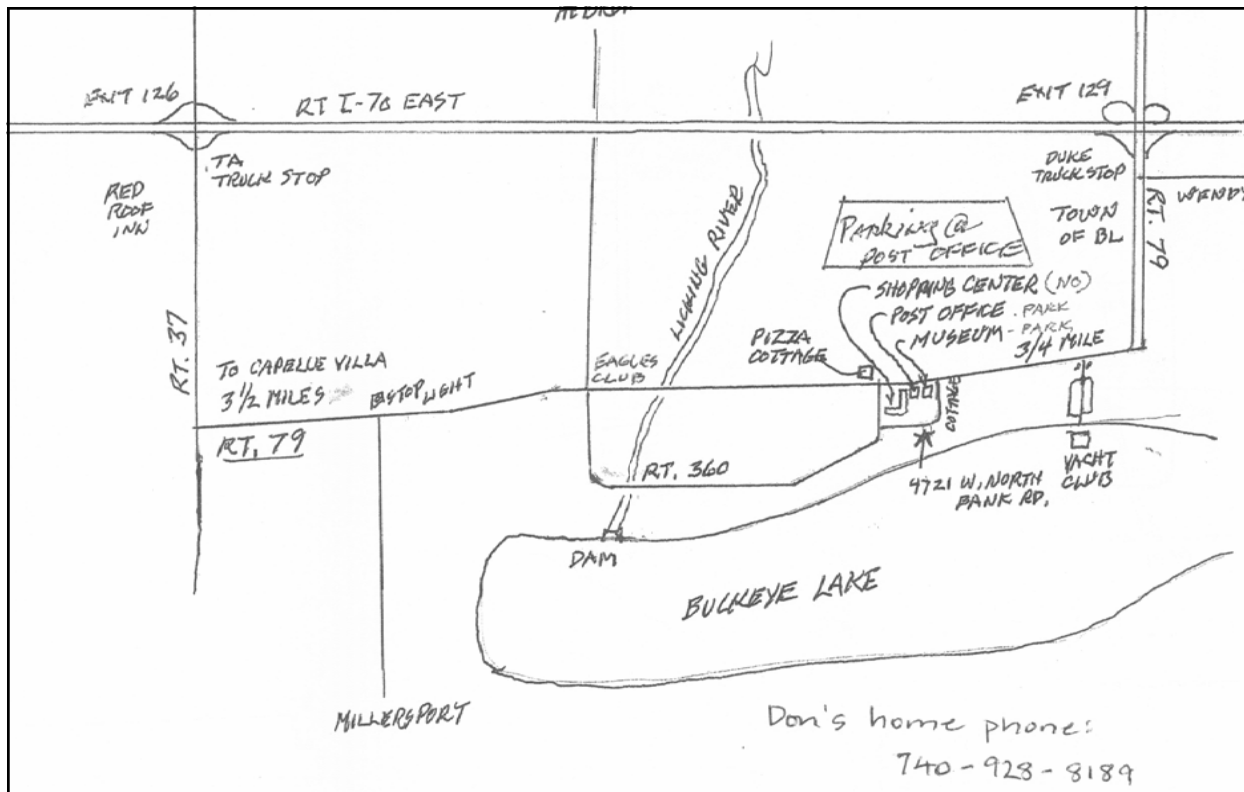 EXIT 126
RT I-70 EAST
EXIT 129
TA
TRUCK STOP
RED
ROOF
INN
DUKE
TRUCK STOP
WENDY
RT. 79
TOWN
OF BL
LICKING RIVER
Parking @
POST OFFICE
SHOPPING CENTER (NO)
POST OFFICE - PARK
MUSEUM - PARK
3/4 MILE
PIZZA
COTTAGE
RT. 37
TO CAPELLE VILLA
3 1/2 MILES
STOP LIGHT
EAGLES
CLUB
COTTAGE
RT. 79
RT. 360
4721 W. NORTH
BANK RD.
YACHT
CLUB
DAM
BUCKEYE LAKE
MILLERSPORT
Don's home phone:
740-928-8189